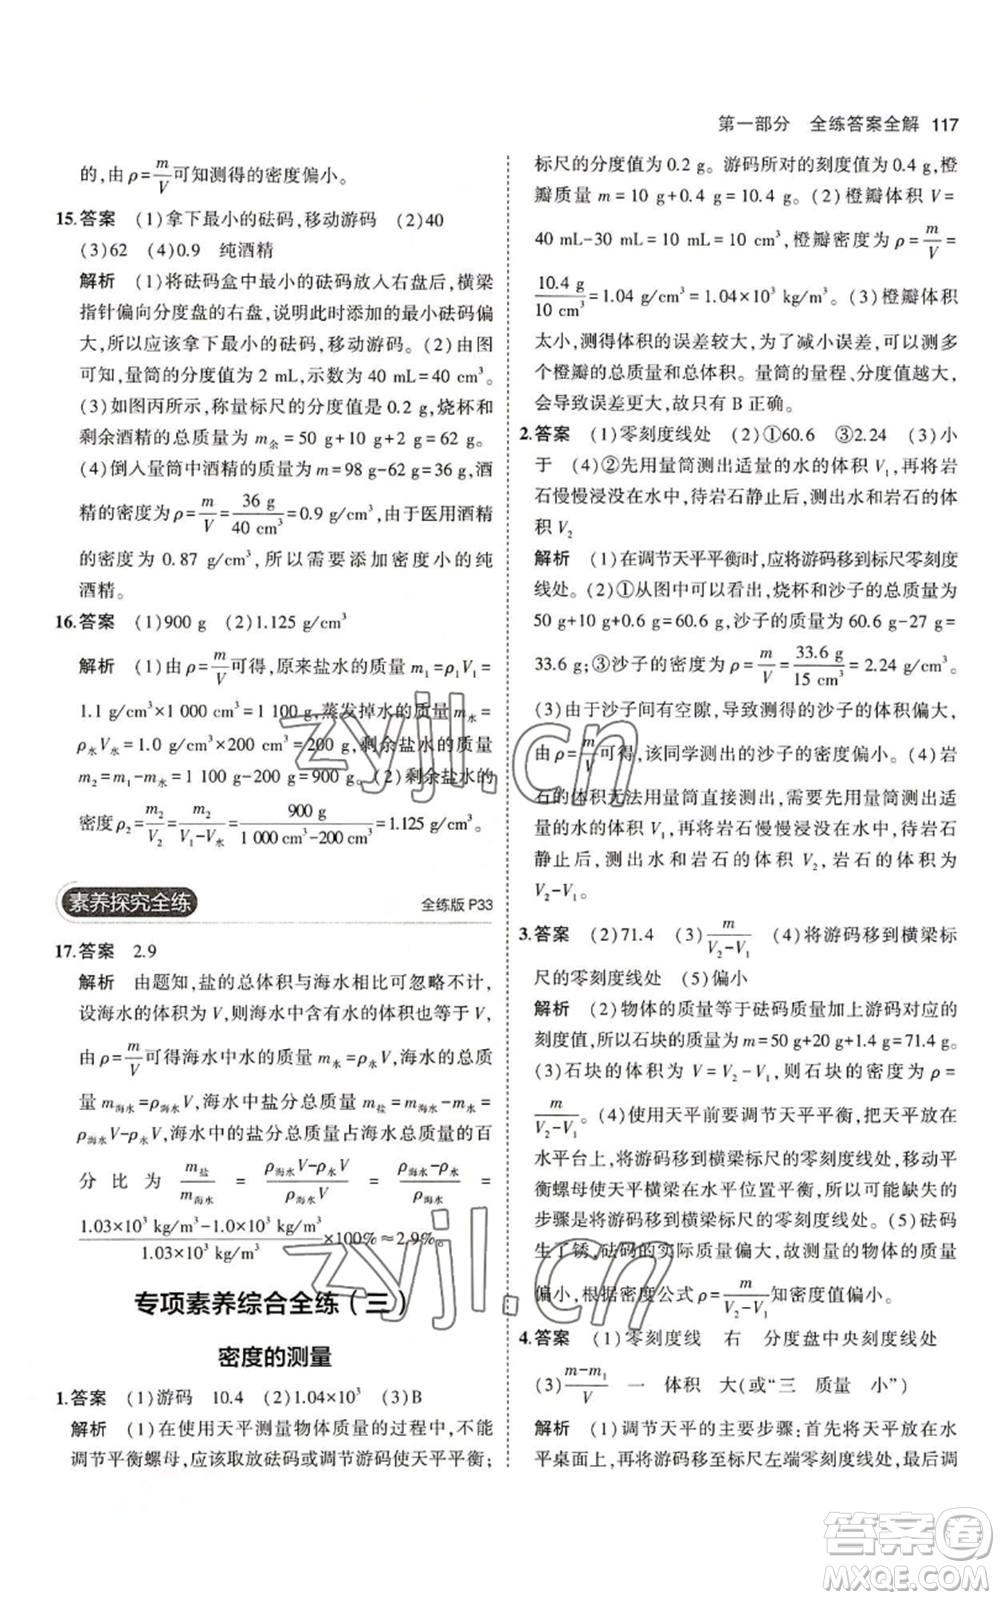 第一部分 全练答案全解 117
的,由ρ=m/V可知测得的密度偏小。
15.答案 (1)拿下最小的砝码,移动游码 (2)40
(3)62 (4)0.9 纯酒精
解析 (1)将砝码盒中最小的砝码放入右盘后,横梁
指针偏向分度盘的右盘,说明此时添加的最小砝码偏
大,所以应该拿下最小的砝码,移动游码。(2)由图
可知,量筒的分度值为 2 mL,示数为 40 mL=40 cm³。
(3)如图丙所示,称量标尺的分度值是 0.2 g,烧杯和
剩余酒精的总质量为 m余=50 g+10 g+2 g=62 g。
(4)倒入量筒中酒精的质量为 m=98 g-62 g=36 g,酒
精的密度为ρ=m/V=36 g/40 cm³=0.9 g/cm³,由于医用酒精
的密度为 0.87 g/cm³,所以需要添加密度小的纯
酒精。
16.答案 (1)900 g (2)1.125 g/cm³
解析 (1)由ρ=m/V可得,原来盐水的质量 m₁=ρ₁V₁=
1.1 g/cm³×1 000 cm³=1 100 g,蒸发掉水的质量 m水=
ρ水V水=1.0 g/cm³×200 cm³=200 g,剩余盐水的质量
m₂=m₁-m水=1 100 g-200 g=900 g。(2)剩余盐水的
密度ρ₂=m₂/V₂=m₂/(V₁-V水)=900 g/(1 000 cm³-200 cm³)=1.125 g/cm³。
素养探究全练 全练版 P33
17.答案 2.9
解析 由题知,盐的总体积与海水相比可忽略不计,
设海水的体积为 V,则海水中水的体积也等于 V,
由ρ=m/V可得海水中水的质量 m水=ρ水V,海水的总质
量 m海水=ρ海水V,海水中盐分总质量 m盐=m海水-m水=
ρ海水V-ρ水V,海水中的盐分总质量占海水总质量的百
分比为 m盐/m海水 = (ρ海水V-ρ水V)/ρ海水V =
(1.03×10³ kg/m³-1.0×10³ kg/m³)/(1.03×10³ kg/m³)×100%≈2.9%。
专项素养综合全练(三)
密度的测量
1.答案 (1)游码 10.4 (2)1.04×10³ (3)B
解析 (1)在使用天平测量物体质量的过程中,不能
调节平衡螺母,应该取放砝码或调节游码使天平平衡;
标尺的分度值为 0.2 g。游码所对的刻度值为 0.4 g,橙
瓣质量 m=10 g+0.4 g=10.4 g。(2)橙瓣体积 V=
40 mL-30 mL=10 mL=10 cm³,橙瓣密度为ρ=m/V=
10.4 g/10 cm³=1.04 g/cm³=1.04×10³ kg/m³。(3)橙瓣体积
太小,测得体积的误差较大,为了减小误差,可测出多
个橙瓣的总质量和总体积。量筒的量程、分度值越大,
会导致误差更大,故只有 B 正确。
2.答案 (1)零刻度线处 (2)①60.6 ③2.24 (3)小
于 (4)②先用量筒测出适量的水的体积 V₁,再将岩
石慢慢浸没在水中,待岩石静止后,测出水和岩石的体
积 V₂
解析 (1)在调节天平平衡时,应将游码移到标尺零刻度
线处。(2)①从图中可以看出,烧杯和沙子的总质量为
50 g+10 g+0.6 g=60.6 g,沙子的质量为 60.6 g-27 g=
33.6 g;③沙子的密度为ρ=m/V=33.6 g/15 cm³=2.24 g/cm³。
(3)由于沙子间有空隙,导致测得的沙子的体积偏大,
由ρ=m/V可得,该同学测出的沙子的密度偏小。(4)岩
石的体积无法用量筒直接测出,需要先用量筒测出适
量的水的体积 V₁,再将岩石慢慢浸没在水中,待岩石
静止后,测出水和岩石的体积 V₂,岩石的体积为
V₂-V₁。
3.答案 (2)71.4 (3)m/(V₂-V₁) (4)将游码移到横梁标
尺的零刻度线处 (5)偏小
解析 (2)物体的质量等于砝码质量加上游码对应的
刻度值,所以石块的质量为 m=50 g+20 g+1.4 g=71.4 g。
(3)石块的体积为 V=V₂-V₁,则石块的密度为ρ=
m/(V₂-V₁)。(4)使用天平前要调节天平平衡,把天平放在
水平台上,将游码移到横梁标尺的零刻度线处,移动平
衡螺母使天平横梁在水平位置平衡,所以可能缺失的
步骤是将游码移到横梁标尺的零刻度线处。(5)砝码
生了锈,砝码的实际质量偏大,故测量的物体的质量
偏小,根据密度公式ρ=m/(V₂-V₁)知密度值偏小。
4.答案 (1)零刻度线 右 分度盘中央刻度线处
(3)(m-m₁)/V 一 体积 大(或“三 质量 小”)
解析 (1)调节天平的主要步骤:首先将天平放在水
平桌面上,再将游码移至标尺左端零刻度线处,最后调
zyjl.cn
zyjl.cn
答案圈
MXQE.COM